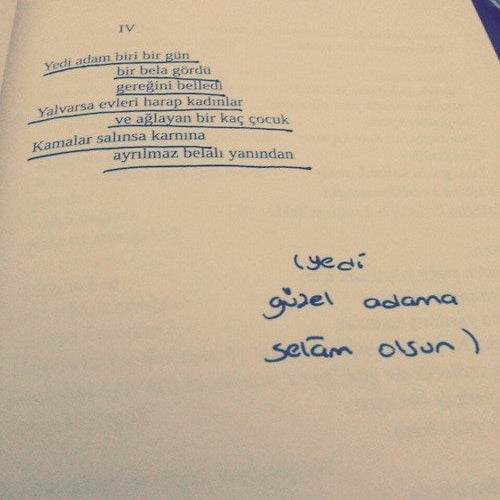 IV
Yedi adam biri bir gün
bir bela gördü
gereğini belledi
Yalvarsa evleri harap kadınlar
ve ağlayan bir kaç çocuk
Kamalar salınsa karnına
ayrılmaz belâlı yanından
(yedi
güzel adama
selâm olsun)